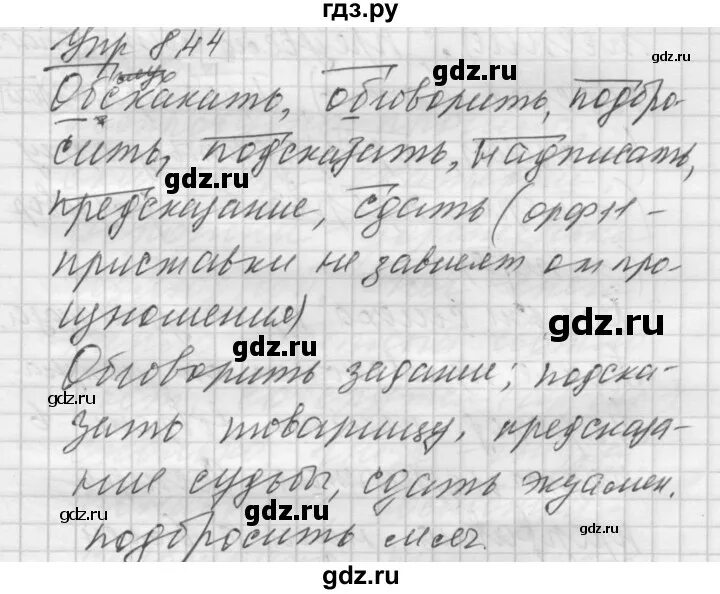 гдз.ру
Упр 844
Обскакать, обговорить, подбро-
сить, подсказать, надписать,
gdz.ru gdz.ru
предсказание, сдать (орф 11 -
приставки не зависят от про-
изношения)
gdz.ru
gdz.ru
Обговорить задание; подска-
gdz.ru gdz.ru
зать товарищу, предсказа-
ние судьбы, сдать экзамен.
gdz.ru gdz.ru
подбросить мяч.
gdz.ru